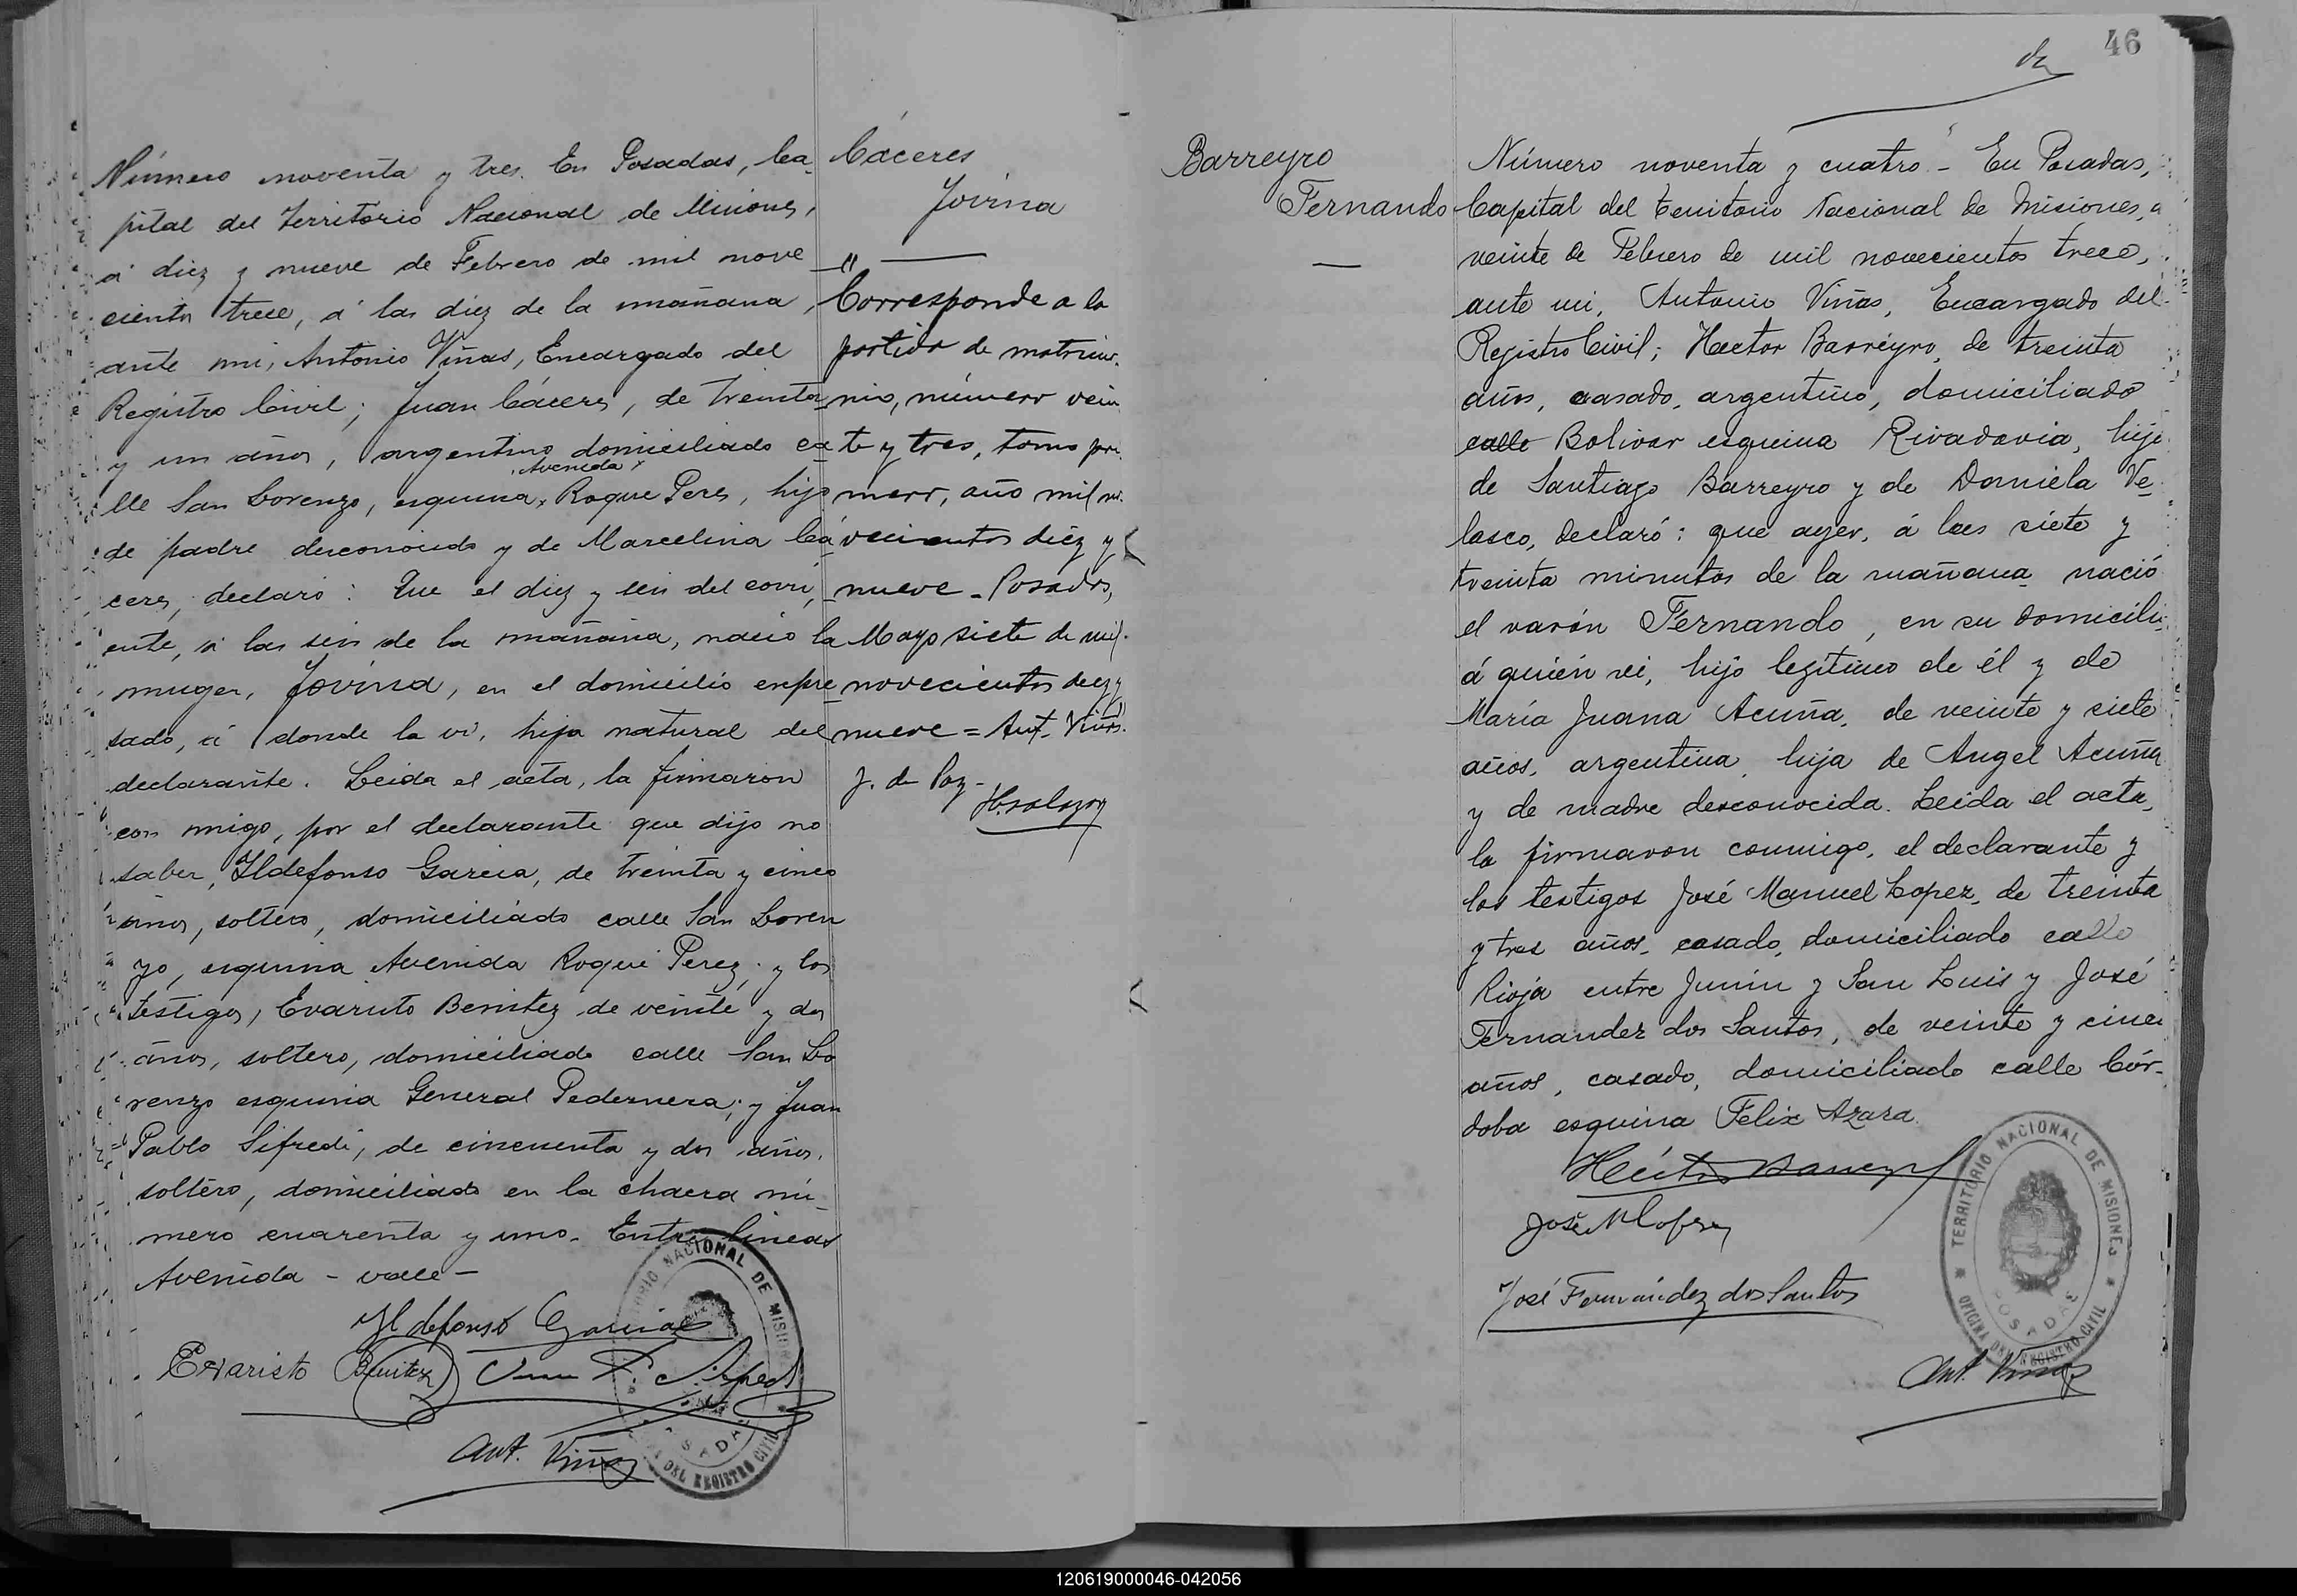 Número noventa y tres. En Posadas, Ca-
pital del Territorio Nacional de Misiones,
á diez y nueve de Febrero de mil nove
cientos trece, á las diez de la mañana,
ante mi, Antonio Viñas, Encargado del
Registro Civil; Juan Cáceres, de treinta
y un años, argentino domiciliado ca-
Avenida
lle San Lorenzo, esquina x Roque Peres, hijo
de padre desconocido y de Marcelina Cá-
ceres, declaró: Que el diez y seis del corri,
ente, á las seis de la mañana, nació la
muger, Jovina, en el domicilio expre
sado, á donde la vi, hija natural del
declarante. Leida el acta, la firmaron
con migo, por el declarante que dijo no
saber, Ildefonso Garcia, de treinta y cinco
años, soltero, domiciliado calle San Loren
zo, esquina Avenida Roque Perez; y los
testigos, Evaristo Benitez de veinte y dos
años, soltero, domiciliado calle San Lo
renzo esquina General Pedernera; y Juan
Pablo Sifredi, de cincuenta y dos años,
soltero, domiciliado en la chacra nú-
mero cuarenta y uno. Entre lineas
Avenida - vale -
Ildefonso Garcia
Evaristo Benitez
Ant. Viñas
NACIONAL DE MISIONES
DEL REGISTRO CIVIL
Cáceres
Jovina
Corresponde a la
partida de matrimo-
nio, número vein
te y tres, tomo pri-
mero, año mil no-
vecientos diez y
nueve - Posadas,
Mayo siete de mil
novecientos diez y
nueve = Ant. Viñas.
J. de Paz -
46
Barreyro
Fernando
Número noventa y cuatro - En Posadas,
Capital del Territorio Nacional de Misiones, a
veinte de Febrero de mil novecientos trece,
ante mi, Antonio Viñas, Encargado del
Registro Civil; Hector Barreyro, de treinta
años, casado, argentino, domiciliado
calle Bolivar esquina Rivadavia, hijo
de Santiago Barreyro y de Daniela Ve-
lasco, declaró: que ayer, á las siete y
treinta minutos de la mañana nació
el varón Fernando, en su domicilio
á quién vi, hijo legítimo de él y de
María Juana Acuña, de veinte y siete
años, argentina, hija de Angel Acuña
y de madre desconocida. Leida el acta,
la firmaron conmigo, el declarante y
los testigos José Manuel Lopez, de treinta
y tres años, casado, domiciliado calle
Rioja entre Junín y San Luis y José
Fernandez dos Santos, de veinte y cinco
años, casado, domiciliado calle Cór-
doba esquina Felix Azara.
Héctor Barreyro
José M Lopez
José Fernández dos Santos
TERRITORIO NACIONAL DE MISIONES
POSADAS
OFICINA DEL REGISTRO CIVIL
Ant. Viñas
120619000046-042056